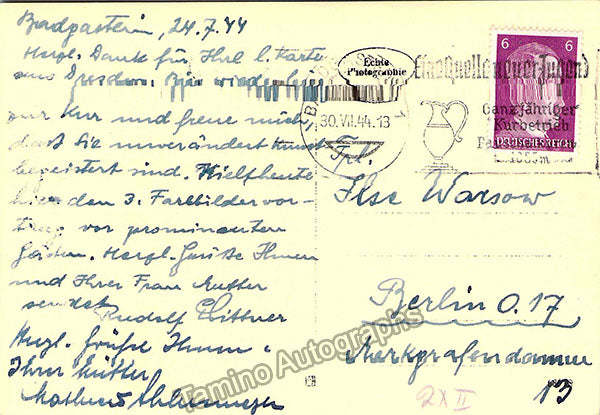 Badgastein, 24.7.44
Herzl. Dank für Ihre l. Karte
aus Dresden. Bin wieder hier
zur Kur und freue mich
dass Sie unverändert Kunst
begeistert sind. Hielt heute
hier den 3. Farbbildervor-
trag vor prominenten
Gästen. Herzl. Grüße Ihnen
und Ihrer Frau Mutter
sendet
Rudolf
Herzl. Grüße Ihnen u.
Ihrer Mutter
Echte
Photographie
30.VII.44.13
Eine Quelle neuer Jugend
Ganzjähriger
Kurbetrieb
6 6
DEUTSCHES REICH
Frl.
Ilse Warsow
Berlin O.17
Markgrafendamm
13
2X II
Tamino Autographs